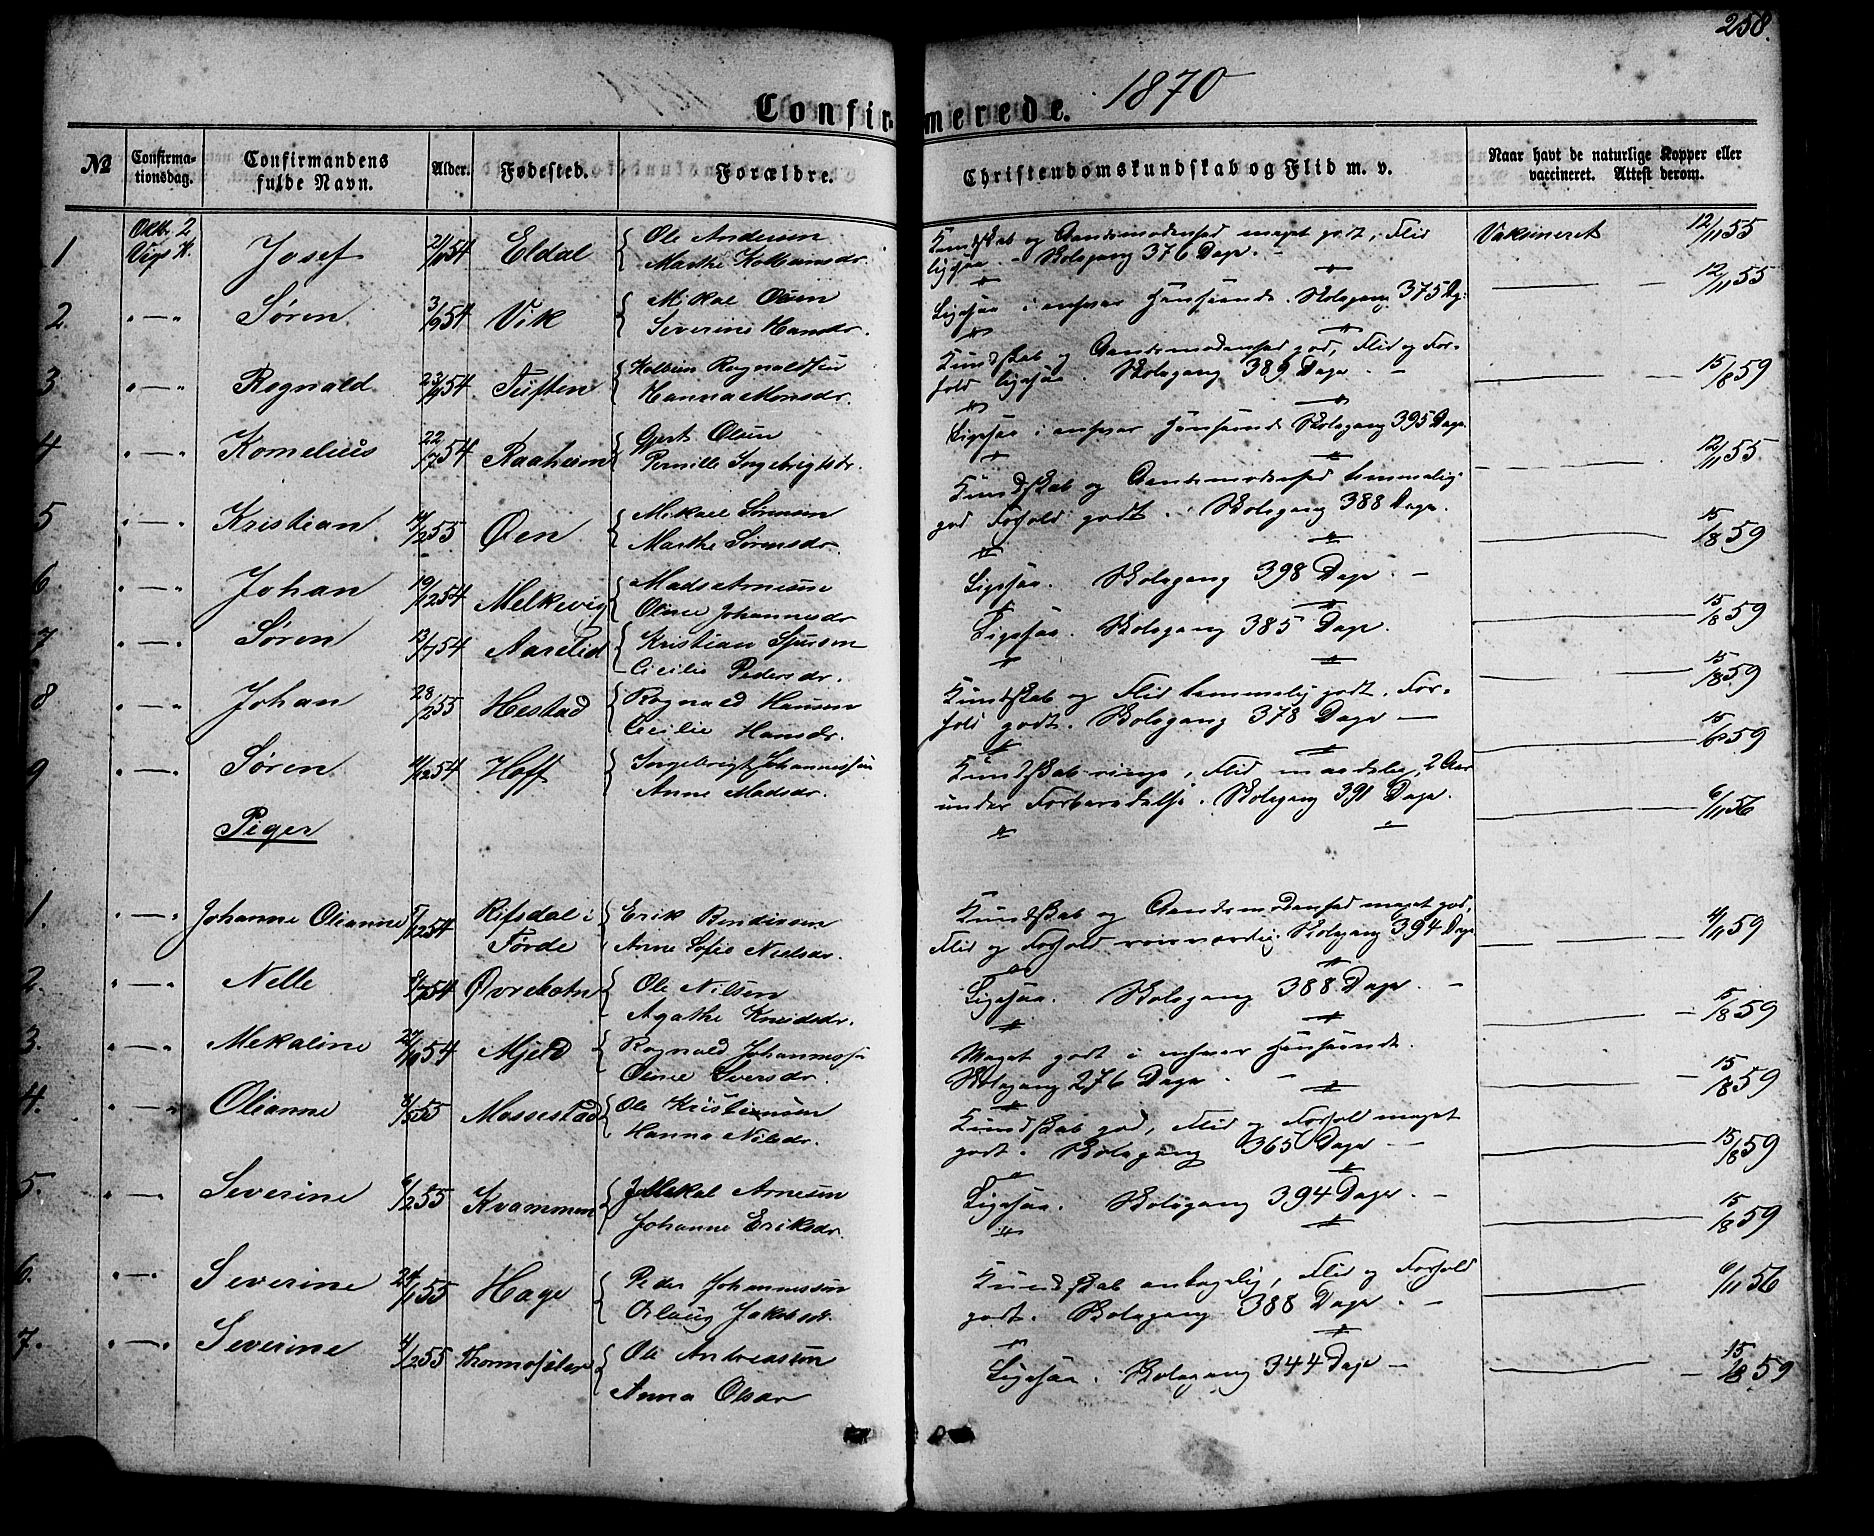 258.
1870
Confirmerede.
No
Confirmationsdag.
Confirmandens fulde Navn.
Alder.
Fødested.
Forældre.
Christendomskundskab og Flid m. v.
Naar havt de naturlige Kopper eller vaccineret. Attest derom.
1 Oktbr. 2 Josef 54 Eldal Ole Andersen
Marthe
Kundskab og Aandsmodenhed meget godt, Flid
ligesaa. - Skolegang 376 Dage. -
Vaksineret 12/11 55
2. " — " Søren 3/9 54 Vik Mikal Olsen
Severine Hansdr.
Ligesaa i enhver Henseende. Skolegang 375 Dg.
12/11 55
3 " — " Rognald 54 Tuften Rognaldsen
Hanna Monsdr.
Kundskab og Aandsmodenhed god, Flid og For-
hold ligesaa. Skolegang 389 Dage -
15/8 59
4 " — " Kornelius 22/7 54 Raaheim Gjert Olsen
Pernille Ingebrigtsdr.
Ligesaa i enhver Henseende Skolegang 395 Dage
12/11 55
5 " — " Kristian 55 Øen Mikael Sørensen
Marthe Sørensdr.
Kundskab og Aandsmodenhed temmelig
god Forhold godt. Skolegang 388 Dage.
15/8 59
6 " — " Johan 19/12 54 Melkevig Mads Arnesen
Oline Johannesdr
Ligesaa. Skolegang 398 Dage -
15/8 59
7 " — " Søren 13/7 54 Aarelid Kristian Sjursen
Cecilie Pedersdr.
Ligesaa. Skolegang 385 Dage.
15/8 59
8 " — " Johan 28/2 55 Hestad Rognald Hansen
Cecilie Hansdr.
Kundskab og Flid temmelig godt. For-
hold godt. Skolegang 378 Dage —
15/8 59
9 " — " Søren 54 Hoff Ingebrigt Johannessen
Anne Madsdr.
Kundskab ringe, Flid maadelig, 2 Aar
under Forberedelse. Skolegang 391 Dage.
6/11 56
Piger
1. " — " Johanne Olianne 54 Rifsdal i
Førde Erik Bendixsen
Anne Sofie Nielsdr.
Kundskab og Aandsmodenhed meget god,
Flid og Forhold roesværdig. Skolegang 394 Dage
59
2. " — " Nelle 54 Øvrebotn Ole Nilsen
Agathe Knudsdr.
Ligesaa. Skolegang 388 Dage. -
15/8 59
3. " — " Mekaline 54 Mjeld Rognald Johannessen
Oline Iversdr.
Meget godt i enhver Henseende.
Skolegang 276 Dage. -
15/8 59
4. " — " Olianne 55 Massestad Ole Kristiansen
Hanna Nilsdr.
Kundskab god, Flid og Forhold meget
godt. Skolegang 365 Dage —
15/8 59
5. " — " Severine 55 Kvammen Mikal Arnesen
Johanne Eriksdr.
Ligesaa. Skolegang 394 Dage. -
15/8 59
6. " — " Severine 24/1 55 Hage Peder Johannessen
Jakobsdr.
Kundskab antagelig, Flid og Forhold
godt. Skolegang 388 Dage. -
6/11 56
7. " — " Severine 4/2 55 Ole Andreassen
Anna Olsdr
Ligesaa. Skolegang 344 Dage —
15/8 59